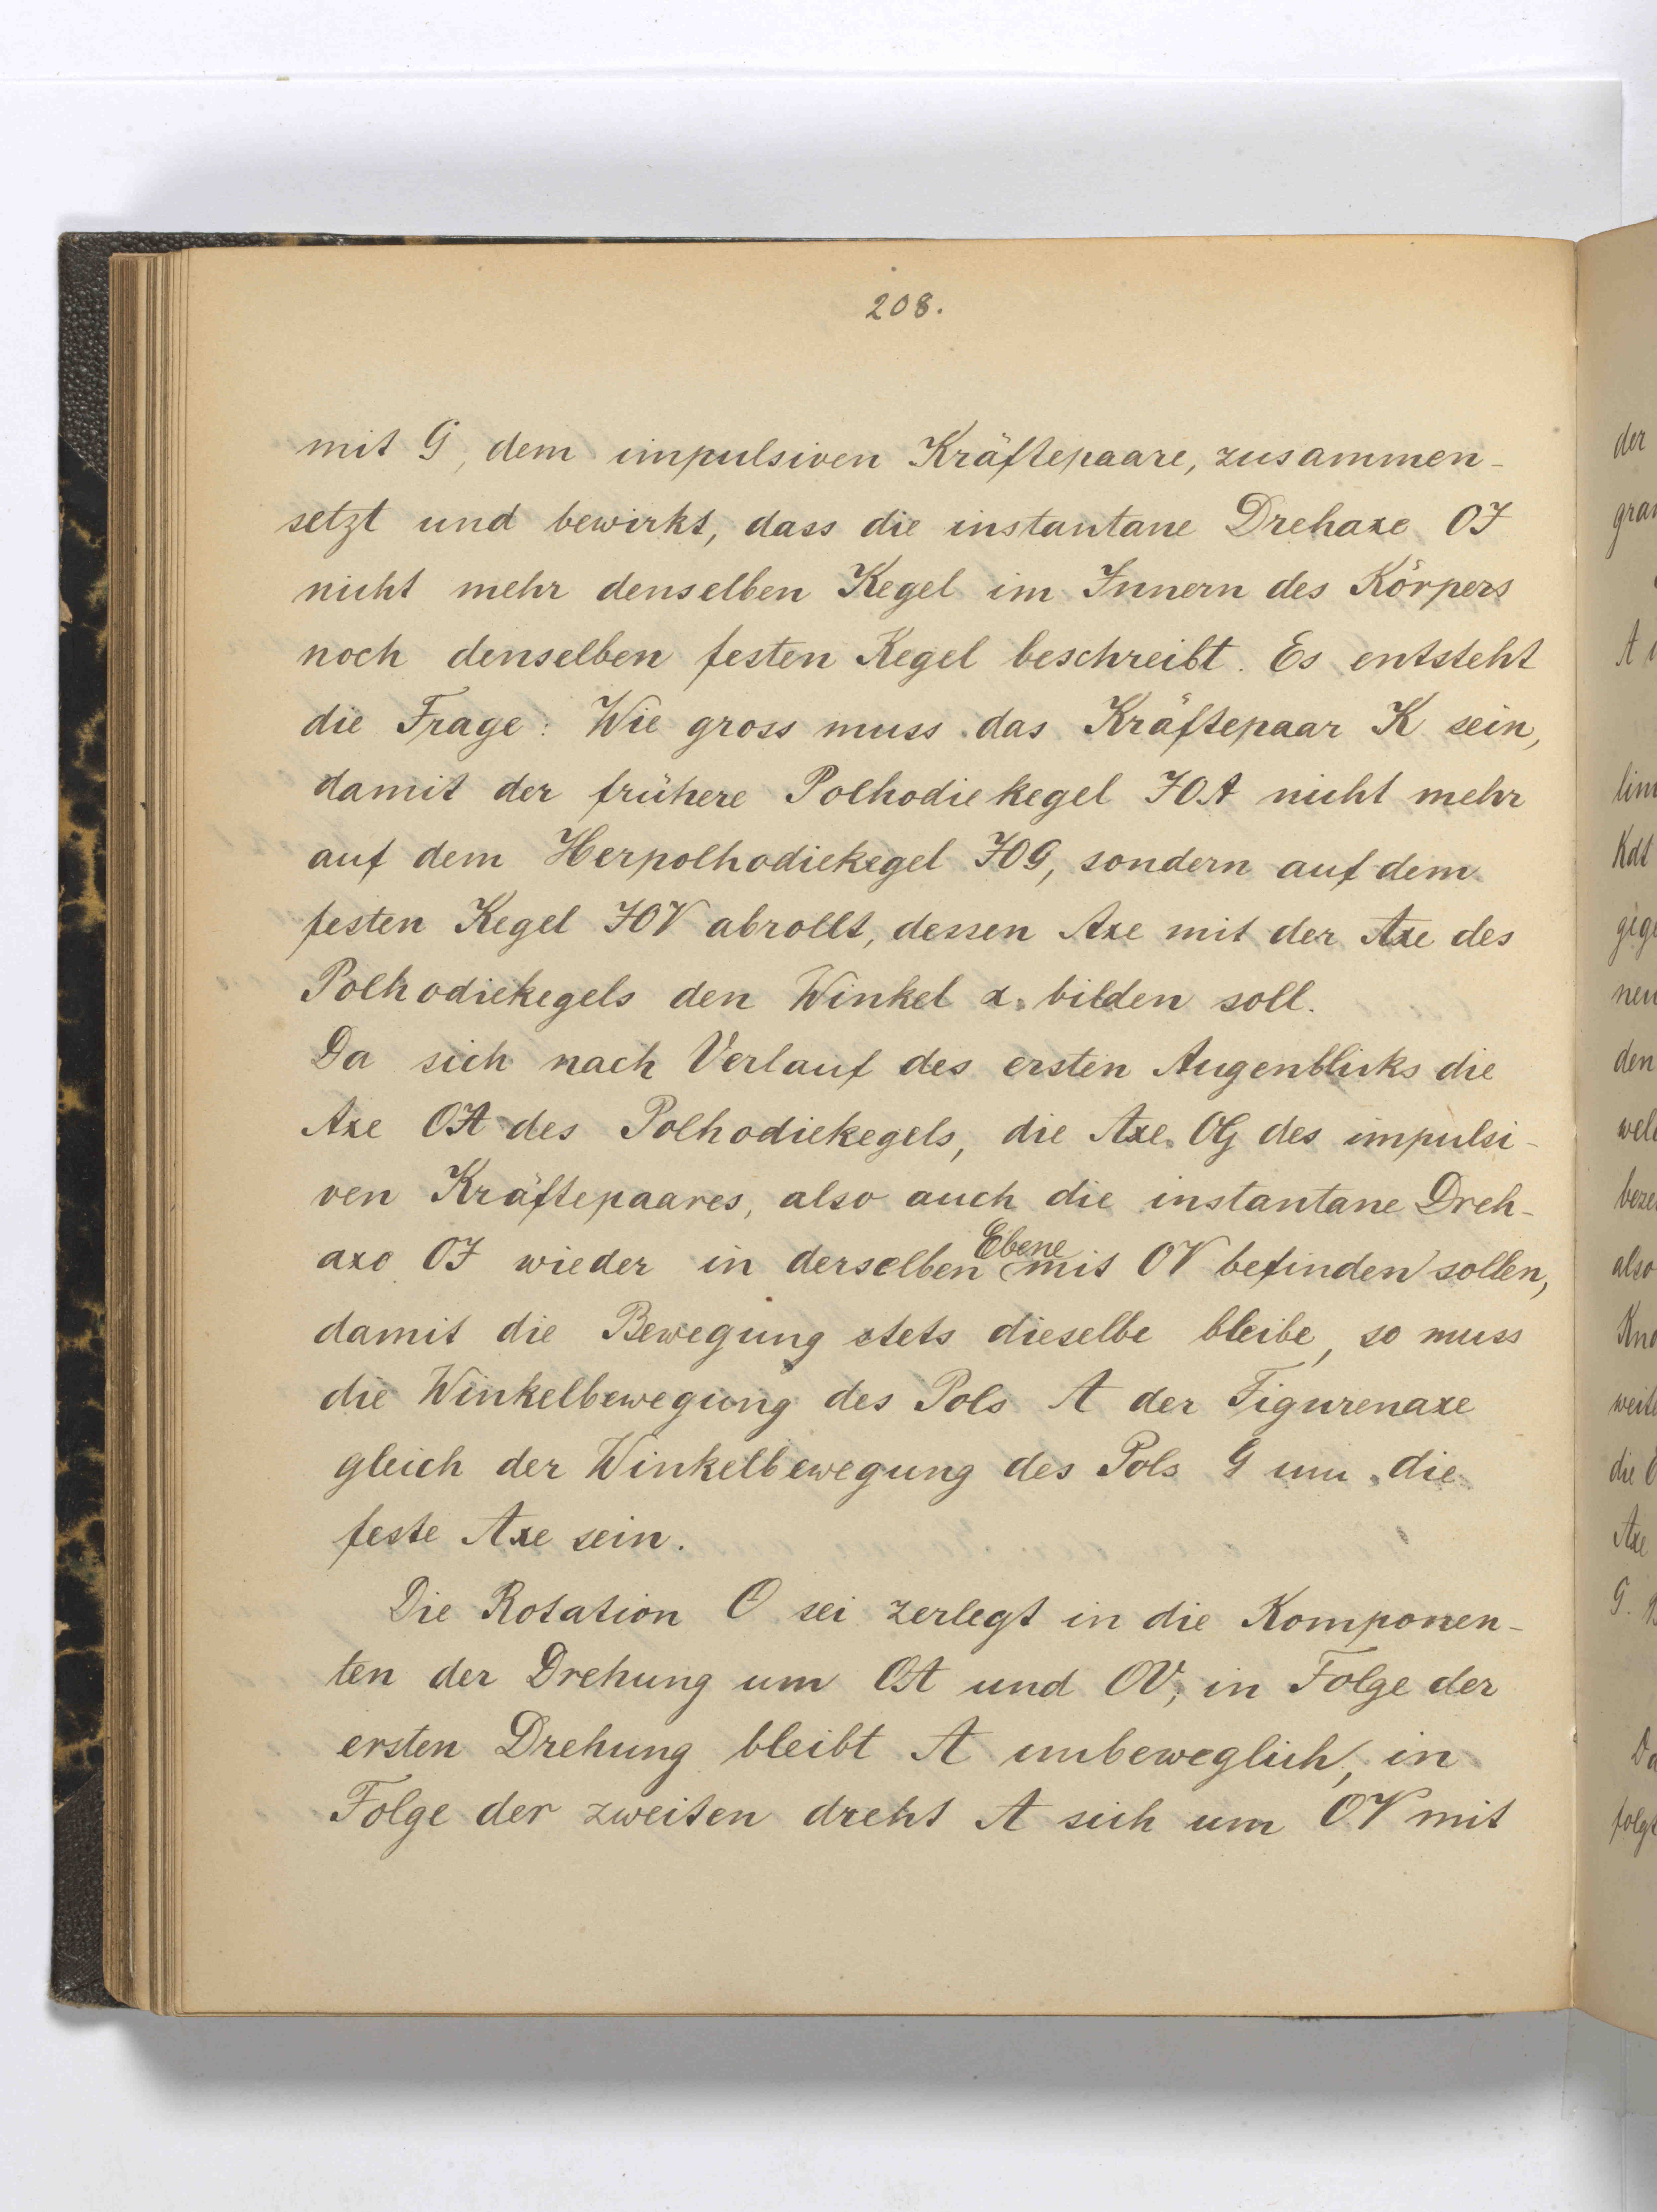 208.
mit G, dem impulsiven Kräftepaare, zusammen-
setzt und bewirkt, dass die instantane Drehaxe OJ
nicht mehr denselben Kegel im Innern des Körpers
noch denselben festen Kegel beschreibt. Es entsteht
die Frage: Wie gross muss das Kräftepaar K sein,
damit der frühere Polhodiekegel JOA nicht mehr
auf dem Herpolhodiekegel JOG, sondern auf dem
festen Kegel JOV abrollt, dessen Axe mit der Axe des
Polhodiekegels den Winkel α bilden soll.
Da sich nach Verlauf des ersten Augenblicks die
Axe OA des Polhodiekegels, die Axe OG des impulsi-
ven Kräftepaares, also auch die instantane Dreh-
axe OJ wieder in derselben Ebene mit OV befinden sollen,
damit die Bewegung stets dieselbe bleibe, so muss
die Winkelbewegung des Pols A der Figurenaxe
gleich der Winkelbewegung des Pols G um die
feste Axe sein.
Die Rotation O sei zerlegt in die Komponen-
ten der Drehung um OA und OV; in Folge der
ersten Drehung bleibt A unbeweglich, in
Folge der zweiten dreht A sich um OV mit